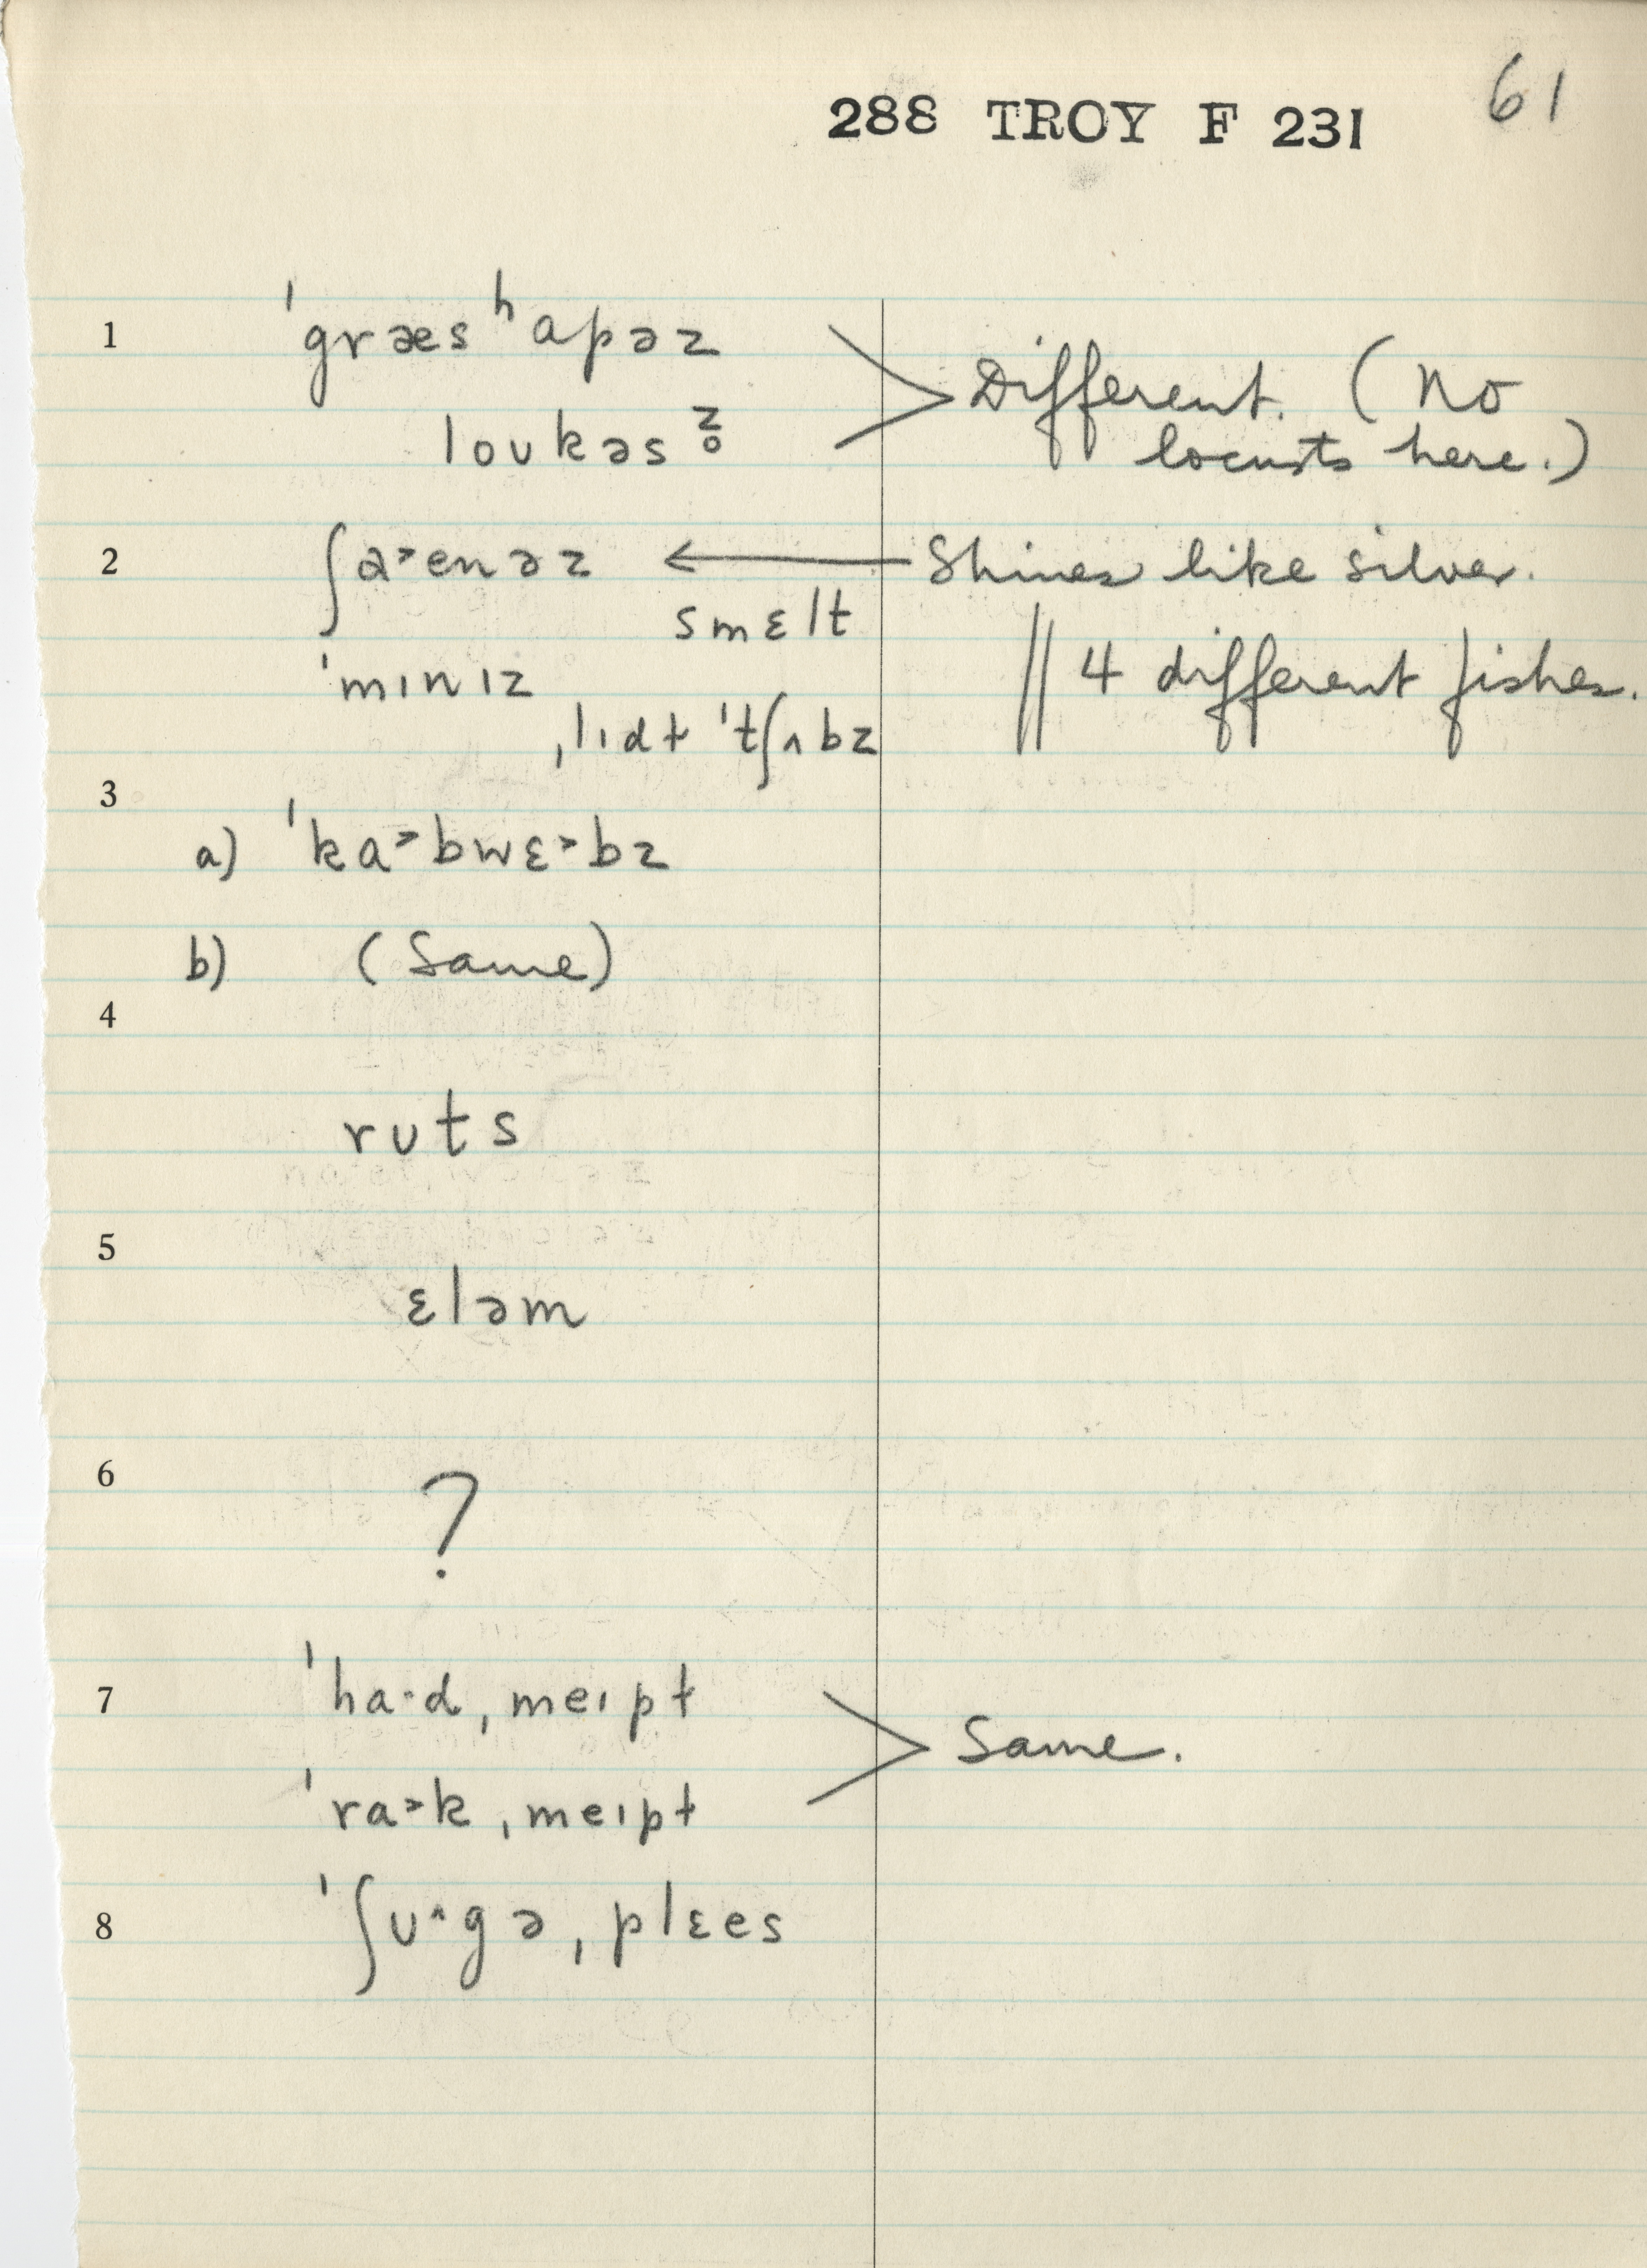 61
288 TROY F 231
1 ˈgræsʰapəz
loʊkəsz̥
Different. (No
locusts here.)
2 ʃa˃enəz ← Shines like silver.
smɛlt
ˈmɪnɪz
‖ 4 different fishes.
ˌlɪdɫ ˈtʃʌbz
3
a) ˈka˃bwɛ˃bz
b) (Same)
4
rʊts
5
ɛləm
6
?
7 ˈha·d ˌmeɪpɫ
Same.
ˈra˃k ˌmeɪpɫ
8 ˈʃʊ^gə ˌplɛes